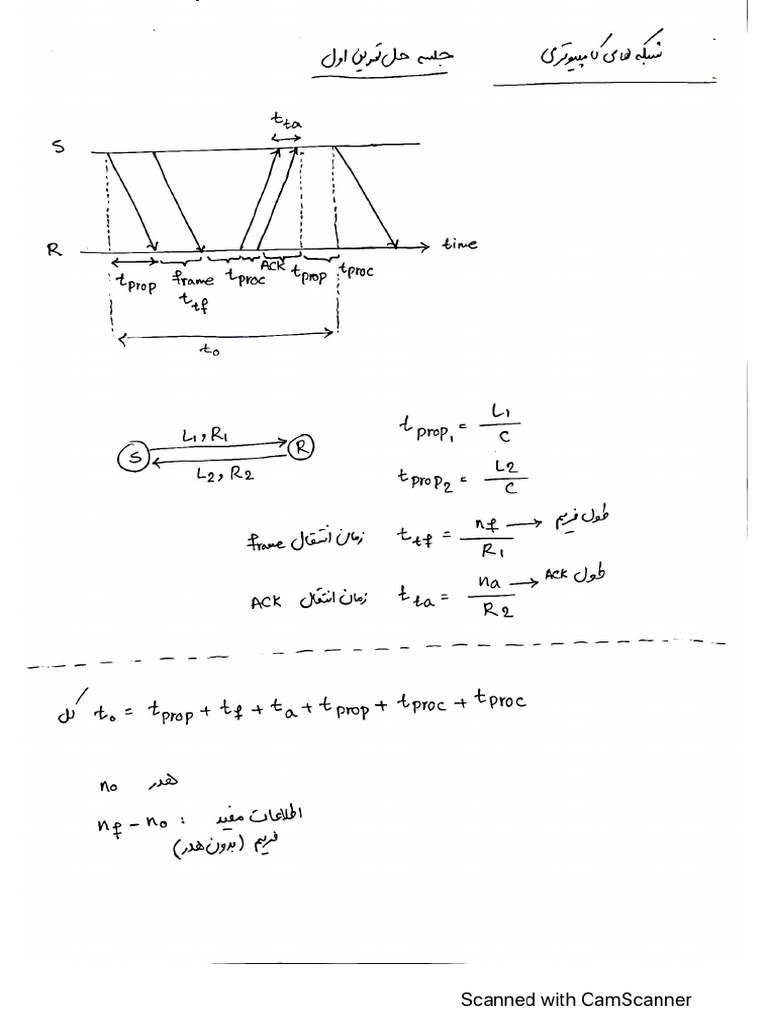 شبکه های کامپیوتری
جلسه حل تمرین اول
t_ta
S
R
time
t_prop frame t_proc ACK t_prop t_proc
t_tf
t_0
S L1, R1 R
L2, R2
t_prop1 = L1/C
t_prop2 = L2/C
زمان انتقال frame t_tf = nf/R1 → طول فریم
زمان انتقال ACK t_ta = na/R2 → طول ACK
کل t_0 = t_prop + t_f + t_a + t_prop + t_proc + t_proc
no هدر
nf - no : اطلاعات مفید
فریم (بدون هدر)
Scanned with CamScanner